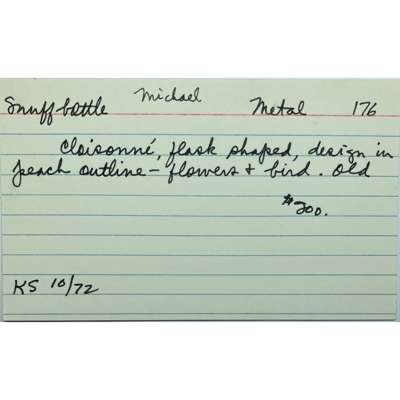 Snuff bottle Michael Metal 176
Cloisonné, flask shaped, design in
peach outline - flowers + bird. Old
$200.
KS 10/72